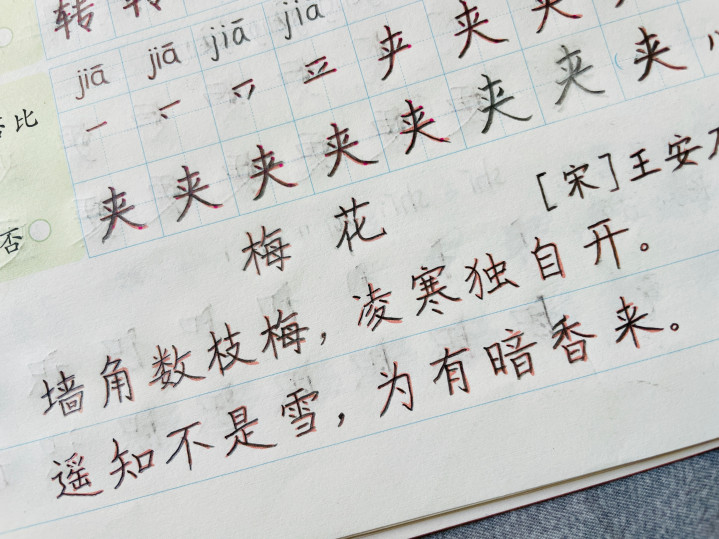 转 转
jiā jiā jiā jiā
夹 夹 夹
比
夹 夹 夹
否
夹 夹 夹 夹 夹
梅 花
[宋]王安
墙角数枝梅，凌寒独自开。
遥知不是雪，为有暗香来。